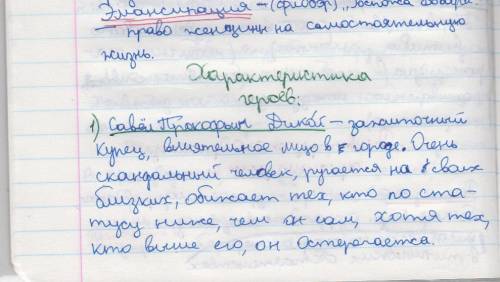 Эмансипация – (Флобэр) „Госпожа Бовари"
– право женщины на самостоятельную
жизнь.
Характеристика
героев:
1) Савёл Прокофьич Дикой – зажиточный
купец, влиятельное лицо в городе. Очень
скандальный человек, ругается на своих
близких, обижает тех, кто по ста-
тусу ниже, чем он сам, хотя тех,
кто выше его, он остерегается.